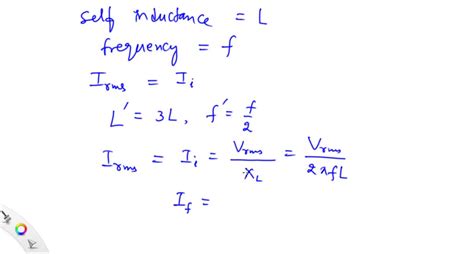 self inductance = L
frequency = f
I_rms = I_i
L' = 3L, f' = f/2
I_rms = I_i = V_rms/X_L = V_rms/2πfL
I_f =